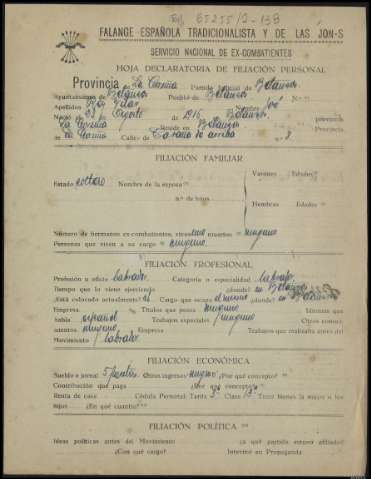 65255/2-138
FALANGE ESPAÑOLA TRADICIONALISTA Y DE LAS JON-S
SERVICIO NACIONAL DE EX-COMBATIENTES
HOJA DECLARATORIA DE FILIACIÓN PERSONAL
Provincia La Coruña Partido Judicial de Betanzos
Ayuntamiento de Betanzos Pueblo de Betanzos N.º
Apellidos Nombre José
Nació el 23 Agosto de 1916 Betanzos provincia
La Coruña Reside en Betanzos Provincia
La Coruña Calle de de arriba
FILIACIÓN FAMILIAR
Varones Edades
Estado soltero Nombre de la esposa
n.º de hijos
Hembras Edades
Número de hermanos ex-combatientes, vivos muertos ninguno
Personas que viven a su cargo ninguno
FILIACIÓN PROFESIONAL
Profesión u oficio labrador Categoría o especialidad labrador
Tiempo que lo viene ejerciendo ¿dónde? en Betanzos
¿Está colocado actualmente? Cargo que ocupa el mismo ¿dónde? en Betanzos
Empresa Títulos que posee ninguno Idiomas que
habla español Trabajos especiales ninguno Otros conoci-
mientos ninguno Empresa Trabajos que realizaba antes del
Movimiento labrador
FILIACIÓN ECONÓMICA
Sueldo o jornal 5 pesetas Otros ingresos ninguno ¿Por qué concepto?
Contribución que paga ¿Por qué concepto?
Renta de casa Cédula Personal: Tarifa 3ª Clase 13ª Tiene bienes la mujer o los
hijos ¿En qué cuantía?
FILIACIÓN POLÍTICA
Ideas políticas antes del Movimiento ¿a qué partido estuvo afiliado?
¿Con qué cargo? Intervino en Propaganda